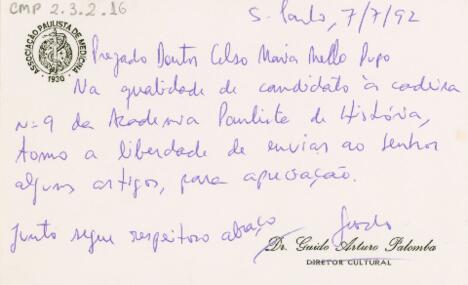 CMP 2.3.2.16
S. Paulo, 7/7/92
ASSOCIAÇÃO PAULISTA DE MEDICINA
1930
Prezado Doutor Celso Maria Mello Pupo
Na qualidade de candidato à cadeira
nº 9 da Academia Paulista de História,
tomo a liberdade de enviar ao Senhor
alguns artigos, para apreciação.
Junto segue respeitoso abraço
Guido
Dr. Guido Arturo Palomba
DIRETOR CULTURAL